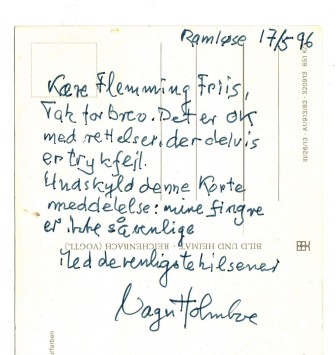 Ramløse 17/5 96
Kære Flemming Friis,
Tak for brev. Det er OK
med rettelser, der delvis
er trykfejl.
Undskyld denne korte
meddelelse: mine fingre
er ikke så venlige
BILD UND HEIMAT · REICHENBACH (VOGTL)
Med de venligste hilsener
Vagn Holmboe